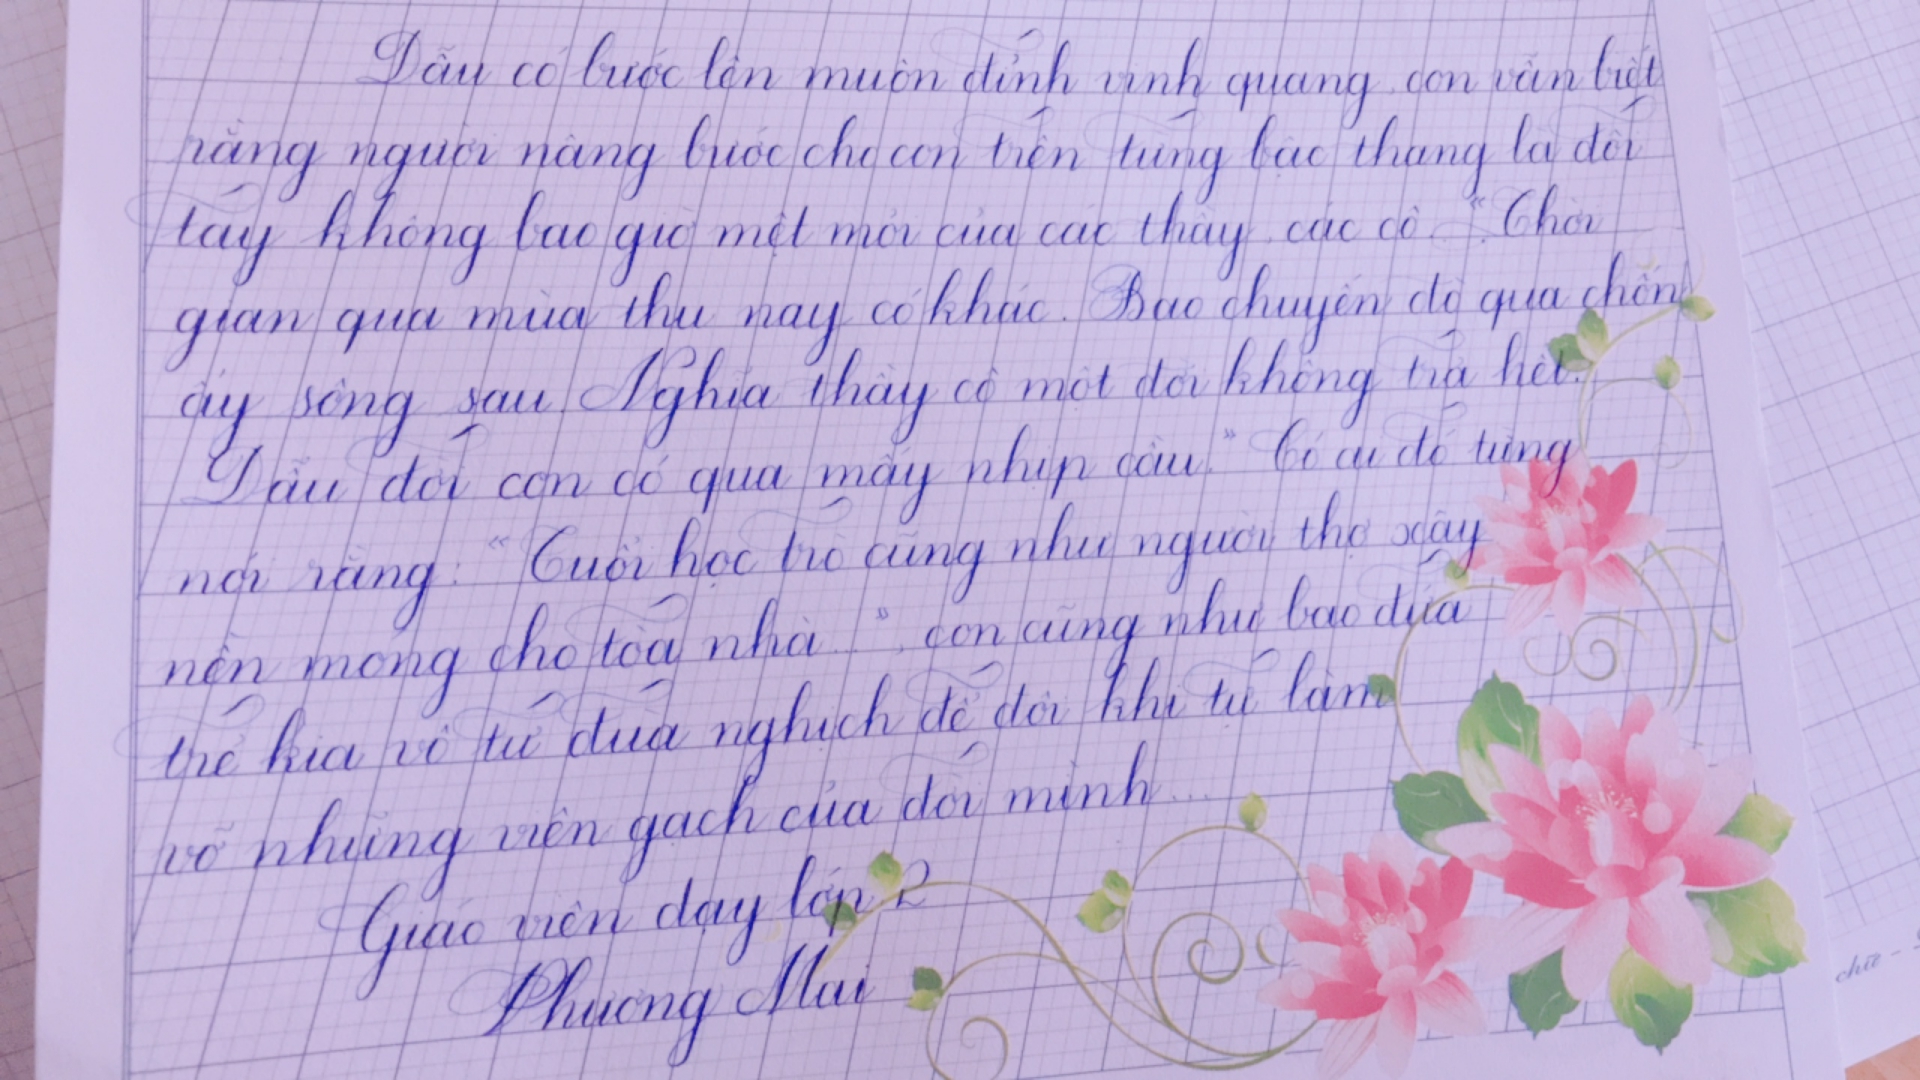 Dẫu có bước lên muôn đỉnh vinh quang, con vẫn biết
rằng người nâng bước cho con trên từng bậc thang là đôi
tay không bao giờ mệt mỏi của các thầy, các cô. "Thời
gian qua mùa thu nay có khác. Bao chuyến đò qua chốn
ấy sông sau. Nghĩa thầy cô một đời không trả hết.
Dẫu đời con có qua mấy nhịp cầu." Có ai đó từng
nói rằng: "Tuổi học trò cũng như người thợ xây
nền móng cho tòa nhà...", con cũng như bao đứa
trẻ kia vô tư đùa nghịch để đôi khi tự làm
vỡ những viên gạch của đời mình...
Giáo viên dạy lớp 2
Phương Mai
chữ -